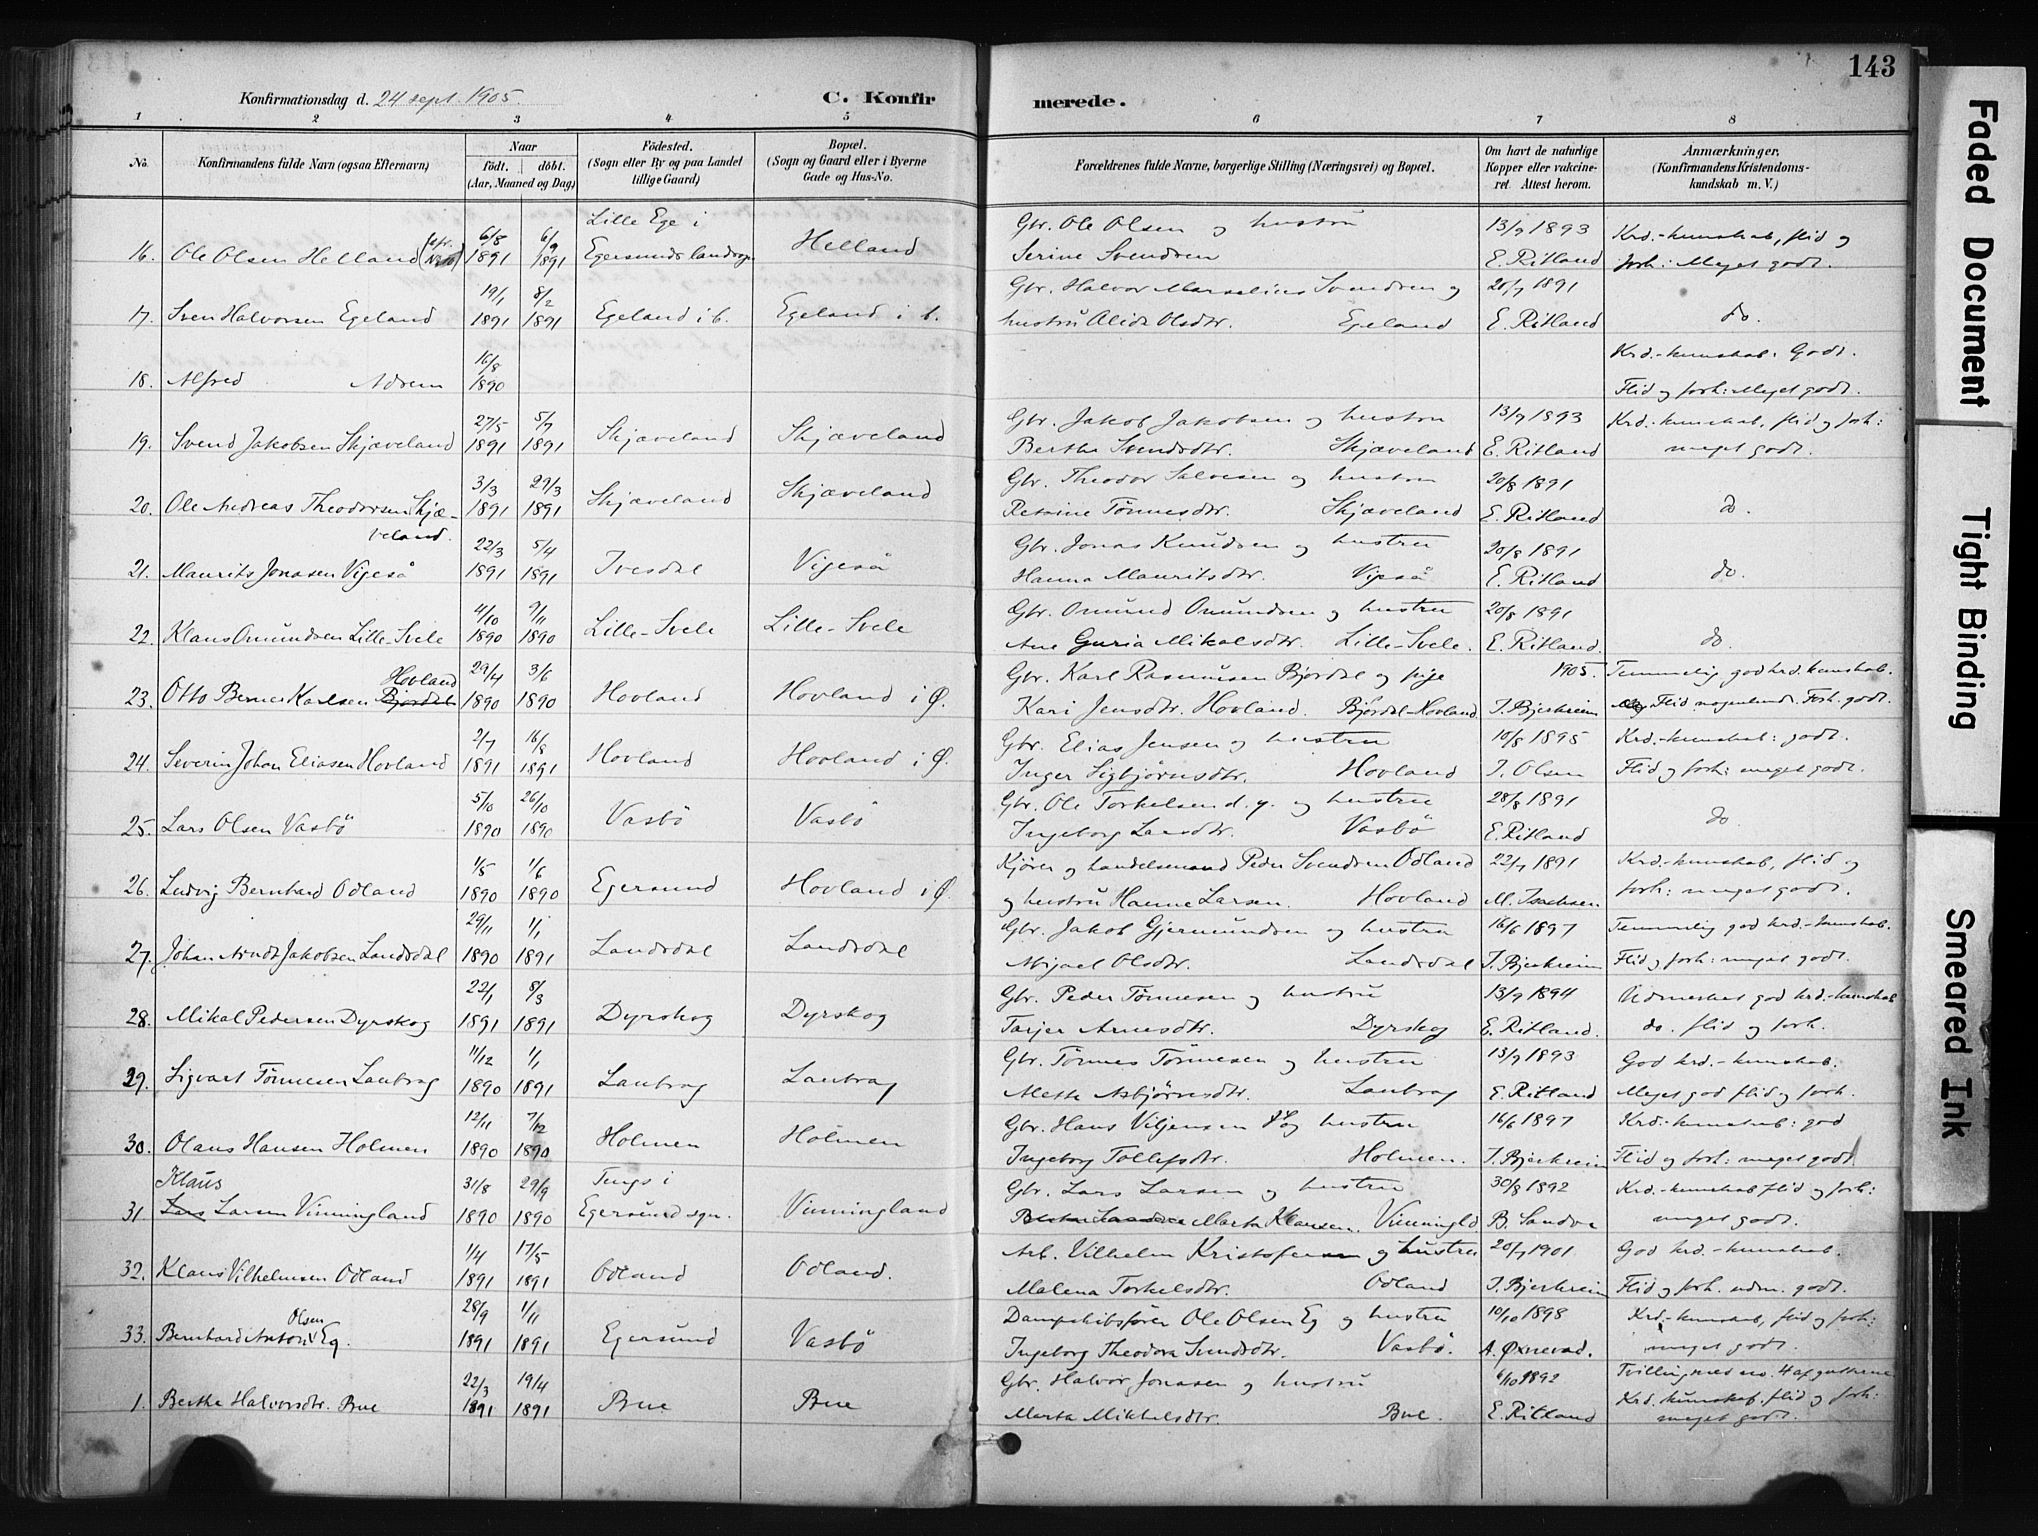 143
Konfirmationsdag d. 24 sept. 1905.
C. Konfirmerede.
1 2 3 4 5 6 7 8
No.
Konfirmandens fulde Navn (ogsaa Efternavn)
Naar
födt. döbt.
(Aar, Maaned og Dag)
Födested.
(Sogn eller By og paa Landet
tillige Gaard)
Bopæl.
(Sogn og Gaard eller i Byerne
Gade og Hus-No.
Forældrenes fulde Navne, borgerlige Stilling (Næringsvei) og Bopæl.
Om havt de naturlige
Kopper eller vakcine-
ret. Attest herom.
Anmærkninger.
(Konfirmandens Kristendoms-
kundskab m. V.)
Lille Ege i Gbr. Ole Olsen og hustru 13/9 1893 Krd.-kunskab, flid og
16. Ole Olsen Helland 6/8 1891 6/9 1891 Egersunds landsogn Helland Serine Svendsen E. Ritland forh: Meget godt.
Gbr. Halvor Marselius Svendsen og 1891
17. Sven Halvorsen Egeland 19/1 1891 8/2 1891 Egeland i b. Egeland i b. hustru Alida Olsdtr. Egeland E. Ritland do.
Krd.-kunskab: Godt.
18. Alfred Adsem 16/8 1890 Flid og forh: Meget godt.
Gbr. Jakob Jakobsen og hustru 13/9 1893 Krd.-kunskab, flid og forh:
19. Svend Jakobsen Skjæveland 27/5 1891 5/7 1891 Skjæveland Skjæveland Berthe Svendsdtr. Skjæveland E. Ritland meget godt.
Gbr. Theodor Salvesen og hustru 20/8 1891
20. Ole Andreas Theodorsen Skjæ- 3/3 1891 29/3 1891 Skjæveland Skjæveland Tönnesdtr. Skjæveland E. Ritland do.
veland.
Gbr. Jonas Knudsen og hustru 20/8 1891
21. Maurits Jonasen Vigeså 22/3 1891 5/4 1891 Ivesdal Vigeså Hanna Mauritsdtr. Vigeså E. Ritland do.
Gbr. Omund Omundsen og hustru 20/8 1891
22. Klaus Omundsen Lille-Svele 4/10 1890 9/11 1890 Lille-Svele Lille-Svele Ane Guria Mikalsdtr. Lille-Svele. E. Ritland. do.
Hovland Gbr. Karl Rasmusen Bjørdal og pige 1905. Temmelig god krd. kunskab.
23. Otto Berner Karlsen Bjørdal 29/4 1890 3/6 1890 Hovland Hovland i Ø. Kari Jensdtr. Hovland. Bjørdal-Hovland. T. Bjerkreim Flid nogenlund. Forh. godt.
Gbr. Elias Jensen og hustru 10/8 1895 Krd.-kunskab: godt.
24. Severin Johan Eliasen Hovland 2/7 1891 16/8 1891 Hovland Hovland i Ø. Inger Sigbjørnsdtr. Hovland T. Olsen Flid og forh: meget godt.
Gbr. Ole Torkelsen d. y. og hustru 28/8 1891
25. Lars Olsen Vasbö 5/10 1890 26/10 1890 Vasbö Vasbö Ingeborg Larsdtr. Vasbö E. Ritland do
Kjører og handelsmand Peder Svendsen Odland 22/7 1891 Krd.-kunskab, flid og
26. Ludvig Bernhard Odland 1/5 1890 1/6 1890 Egersund Hovland i Ø. og hustru Hanne Larsen. Hovland M. Isachsen forh: meget godt.
Gbr. Jakob Gjermundsen og hustru 16/6 1897 Temmelig god krd.-kunskab.
27. Johan Arndt Jakobsen Landsdal 29/11 1890 1/1 1891 Landsdal Landsdal Abigael Olsdtr. Landsdal T. Bjerkreim Flid og forh: meget godt.
Gbr. Peder Tönnesen og hustru 13/9 1894 Udmerket god krd.-kunskab
28. Mikal Pedersen Dyrskog 22/1 1891 8/3 1891 Dyrskog Dyrskog Tarjer Arnesdtr. Dyrskog E. Ritland. do. flid og forh.
Gbr. Tönnes Tönnesen og hustru 13/9 1893 God krd.-kunskab.
29. Sigvart Tönnesen Lauvrag 11/12 1890 1/1 1891 Lauvrag Lauvrag Mette Asbjörnsdtr. Lauvrag E. Ritland Meget god flid og forh.
Gbr. Hans Viljensen og hustru 16/6 1897 Krd.-kunskab: god
30. Olaus Hansen Holmen 12/11 1890 7/12 1890 Holmen Holmen Ingeborg Tollefsdtr. Holmen. T. Bjerkreim Flid og forh: meget godt.
Klaus Tengs i Gbr. Lars Larsen og hustru 30/8 1892 Krd.-kunskab flid og forh:
31. Lars Larsen Vinningland 31/8 1890 29/9 1890 Egersund sgn. Vinningland Marta Klausen. Vinningld B. Sandve meget godt.
Arb. Vilhelm Kristofersen og hustru 20/7 1901 God krd.-kunskab.
32. Klaus Vilhelmsen Odland 1/4 1891 17/5 1891 Odland Odland. Malena Torkelsdtr. Odland T. Bjerkreim Flid og forh. udm. godt.
Olsen Dampskibsfører Ole Olsen Eg og hustru 10/10 1898 Krd.-kunskab, flid og forh:
33. Bernhard Anton Eg. 28/9 1891 1/11 1891 Egersund Vasbö Ingeborg Theodora Svendsdtr. Vasbö. A. Øxnevad. meget godt.
Gbr. Halvor Jonasen og hustru 6/10 1892 Tvilling med no. 4 af guttene
1. Berthe Halvorsdtr. Bue 22/3 1891 19/4 1891 Bue Bue Marta Mikkelsdtr. Bue. E. Ritland Krd. kunskab. flid og forh:
meget godt.
Faded Document
Tight Binding
Smeared Ink